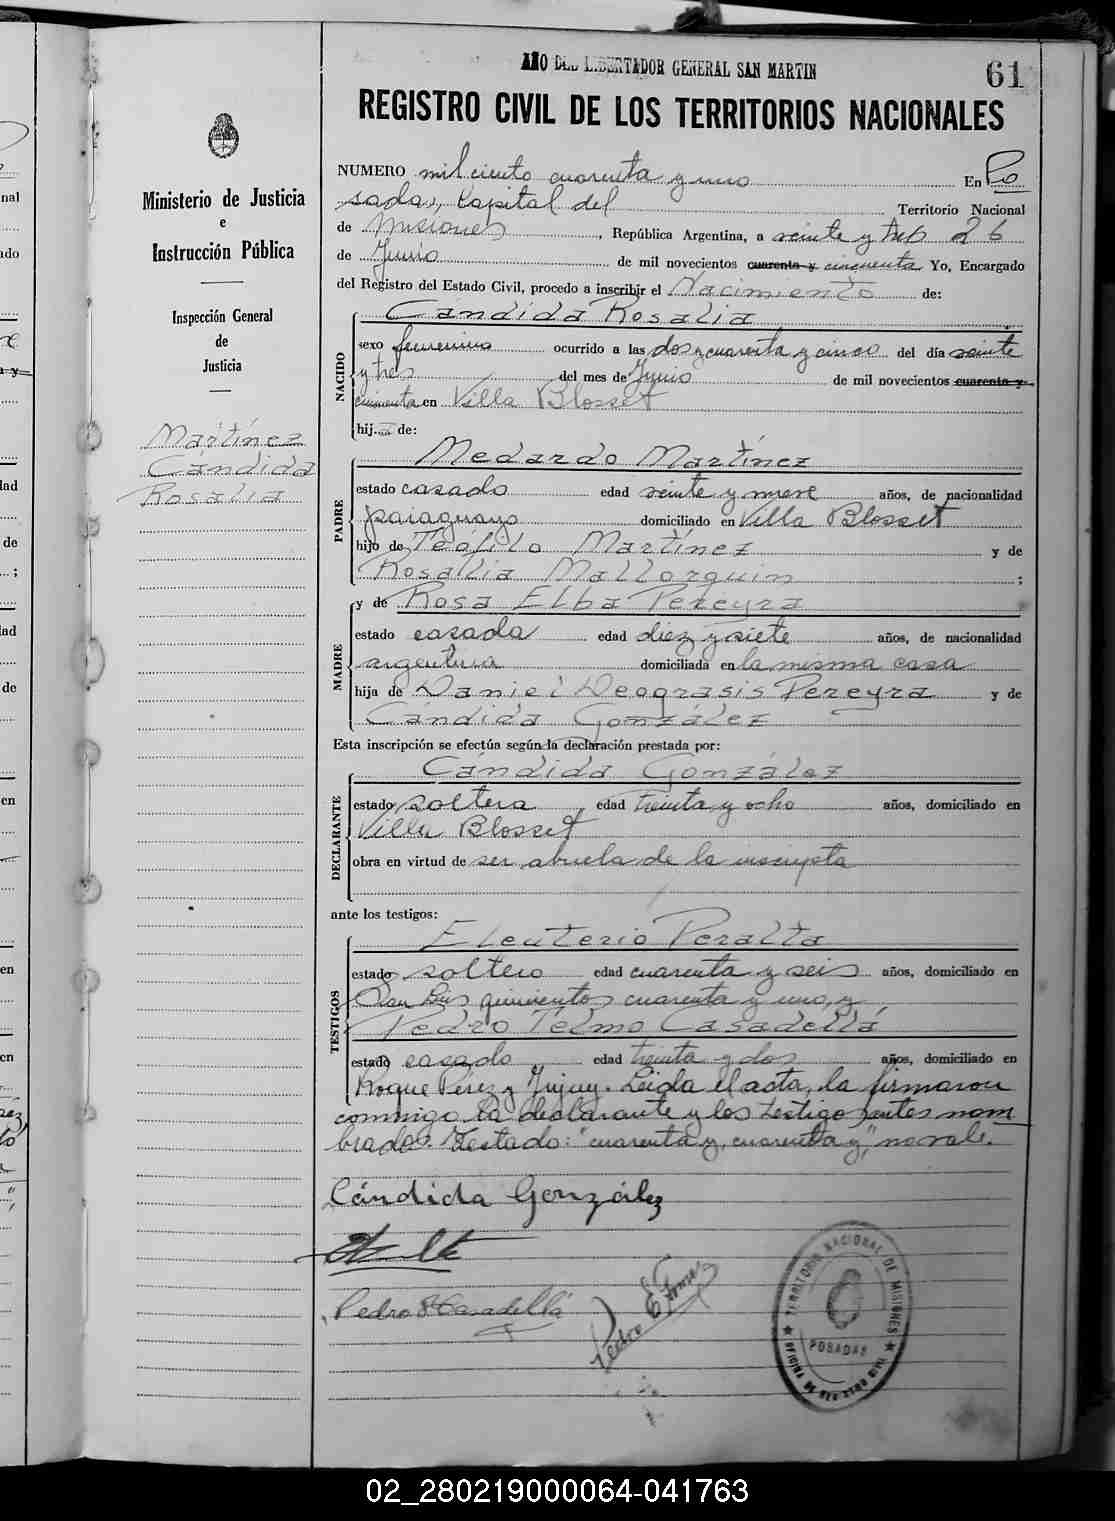 AÑO DEL LIBERTADOR GENERAL SAN MARTIN
61
REGISTRO CIVIL DE LOS TERRITORIOS NACIONALES
Ministerio de Justicia
e
Instrucción Pública
Inspección General
de
Justicia
Martínez
Cándida
Rosalia
NUMERO mil ciento cuarenta y uno En Po
sadas, Capital del Territorio Nacional
de Misiones, República Argentina, a veinte y 26
de Junio de mil novecientos cuarenta y cincuenta Yo, Encargado
del Registro del Estado Civil, procedo a inscribir el Nacimiento de:
NACIDO
Cándida Rosalia
sexo femenino ocurrido a las dos y cuarenta y cinco del día veinte
y tres del mes de Junio de mil novecientos cuarenta y
cincuenta en Villa Blosset
hija de:
PADRE
Medardo Martínez
estado casado edad veinte y nueve años, de nacionalidad
paraguayo domiciliado en Villa Blosset
hijo de Teófilo Martínez y de
Rosalia Mallorquin ;
MADRE
y de Rosa Elba Pereyra
estado casada edad diez y siete años, de nacionalidad
argentina domiciliada en la misma casa
hija de Daniel Deograsis Pereyra y de
Cándida González
Esta inscripción se efectúa según la declaración prestada por:
DECLARANTE
Cándida González
estado soltera edad treinta y ocho años, domiciliado en
Villa Blosset
obra en virtud de ser abuela de la inscripta
ante los testigos:
TESTIGOS
Eleuterio Peralta
estado soltero edad cuarenta y seis años, domiciliado en
San Luis quinientos cuarenta y uno, y
Pedro Telmo Casadellá
estado casado edad treinta y dos años, domiciliado en
Roque Pérez y Jujuy. Leida el acta, la firmaron
conmigo la declarante y los testigos antes nom
brados. Testado: "cuarenta y, cuarenta y," no vale.
Cándida González
Pedro T Casadellá
Pedro E
TERRITORIO NACIONAL DE MISIONES
POSADAS
02_280219000064-041763